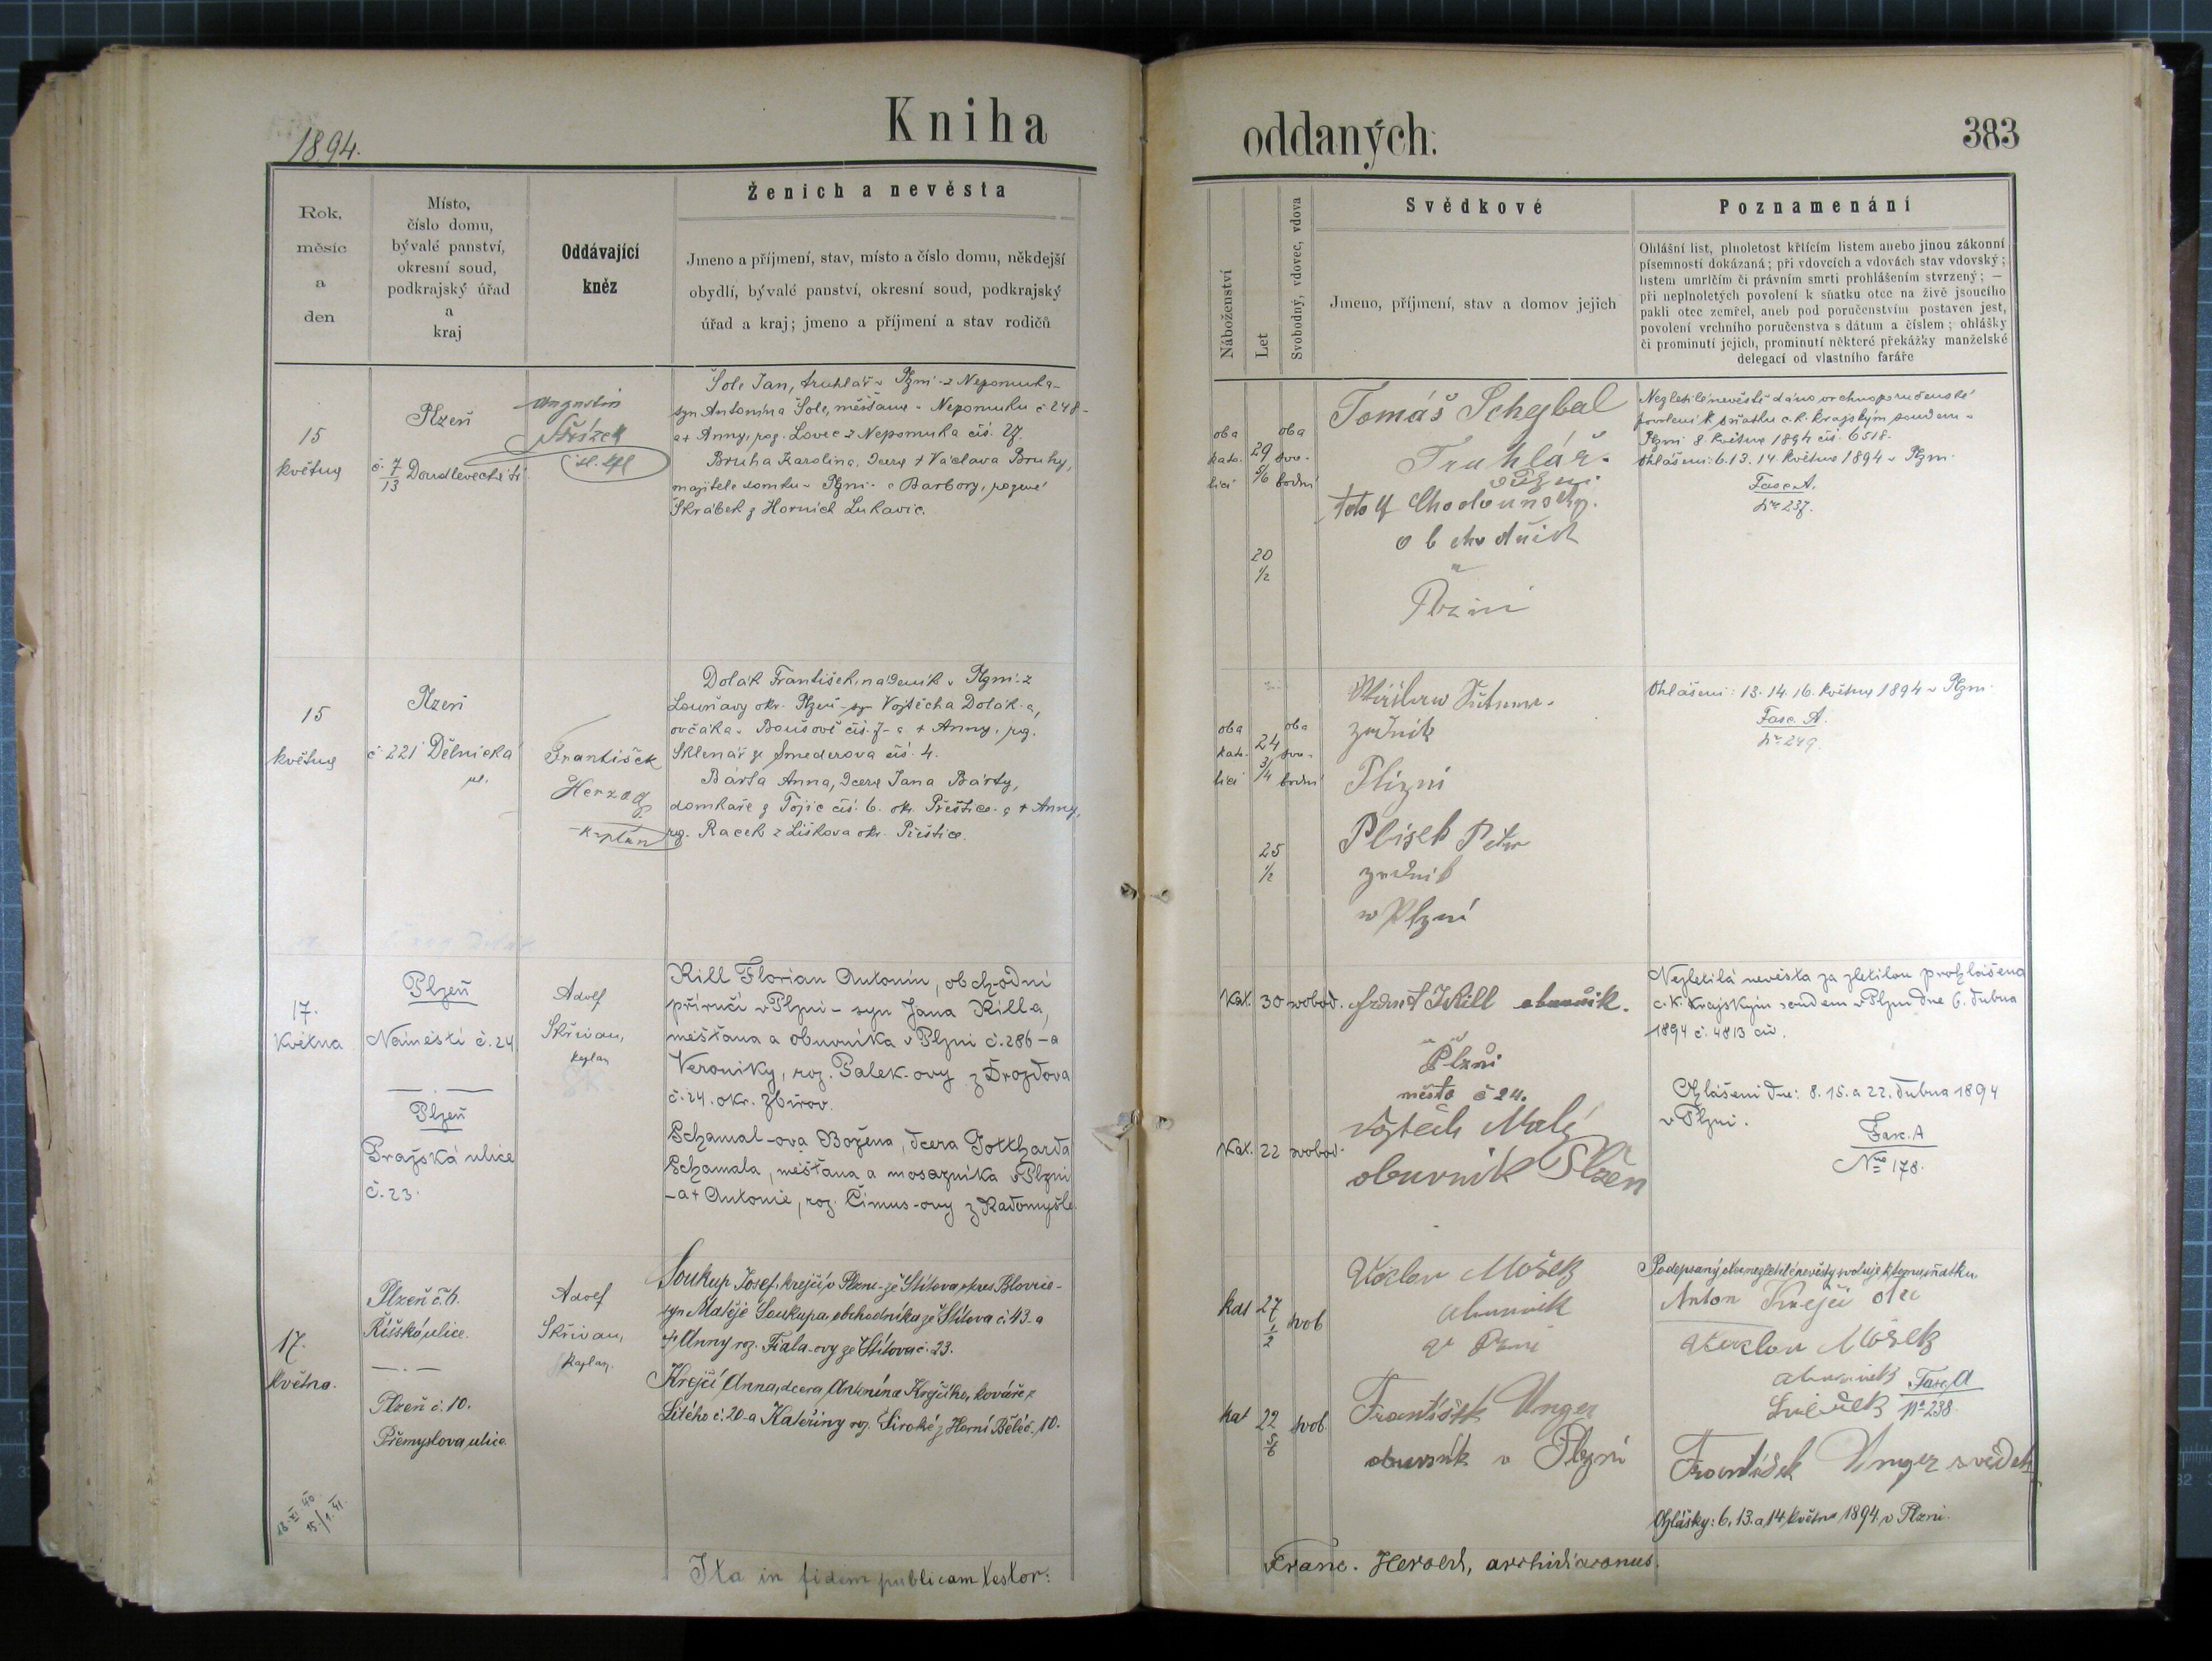 1894.
Kniha
oddaných.
383
Rok,
měsíc
a
den
Místo,
číslo domu,
bývalé panství,
okresní soud,
podkrajský úřad
a
kraj
Oddávající
kněz
Ženich a nevěsta
Jmeno a příjmení, stav, místo a číslo domu, někdejší
obydlí, bývalé panství, okresní soud, podkrajský
úřad a kraj; jmeno a příjmení a stav rodičů
Náboženství
Let
Svobodný, vdovec, vdova
Svědkové
Jmeno, příjmení, stav a domov jejich
Poznamenání
Ohlášní list, plnoletost křticím listem anebo jinou zákonní
písemností dokázaná; při vdovcích a vdovách stav vdovský;
listem umrlčím či právním smrti prohlášením stvrzený; —
při neplnoletých povolení k sňatku otce na živě jsoucího
pakli otec zemřel, aneb pod poručenstvím postaven jest,
povolení vrchního poručenstva s dátum a číslem; ohlášky
či prominutí jejich, prominutí některé překážky manželské
delegací od vlastního faráře
15
května
Plzeň
č. 7/13 Doudlevecká tř.
Augustin
Střízek
Šole Jan, truhlář v Plzni - z Nepomuka -
syn Antonína Šole, měšťana v Nepomuku č 248 -
a + Anny, roz. Lovec z Nepomuka čís. 27.
Bruha Karolina, dcera + Václava Bruhy,
majitele domku v Plzni - a Barbory, rozené
Škrábek z Horních Lukavic.
oba
kato-
lící
29
5/6
20
1/2
oba
svo-
bodni
Tomáš Schybal
Truhlář.
v Plzni.
Chodounský.
obchodník
v
Plzni
Nezletilé nevěstě dáno vrchnoporučenské
povolení k sňatku c. k. krajským soudem v
Plzni 8. května 1894 čís. 6518.
Ohlášeni: 6. 13. 14. května 1894 v Plzni.
Fasc. A.
No 237.
15
května
Plzeň
č 221 Dělnická
ul.
František
Herzog
kaplan
Dolák František, nádeník v Plzni - z
Louňavy okr. Plzeň - syn Vojtěcha Dolák-a,
ovčáka v Boušově čís. 7 - a + Anny, roz.
Sklenář ze Smederova čís. 4.
Bárta Anna, dcera Jana Bárty,
domkaře z Tojic čís. 6. okr. Přeštice - a + Anny,
roz. Racek z Liškova okr. Přeštice.
oba
kato-
lící
24
3/4
25
1/2
oba
svo-
bodni
zedník
Plizni
Plisek Petr
zedník
w Plzni
Ohlášeni: 13. 14. 16. května 1894 v Plzni.
Fasc. A.
No 249.
17.
Května
Plzeň
Náměstí č. 24
Plzeň
Pražská ulice
č. 23.
Adolf
Skřivan,
kaplan
Kill Florian Antonín, obchodní
příručí v Plzni - syn Jana Killa,
měšťana a obuvníka v Plzni č. 286 - a
Veroniky, roz. Palek-ovy z Drozdova
č. 24. okr. Zbirov.
Schamal-ova Božena, dcera Gottharda
Schamala, měšťana a mosazníka v Plzni
- a + Antonie, roz. Čimus-ovy z Radomyšle.
Kat. 30 svobod.
Kat. 22 svobod.
Kill obuvník.
v
Plzni
město č 24.
Vojtěch Malý
obuvník Plzen
Nezletilá nevěsta za zletilou prohlášena
c. k. krajským soudem v Plzni dne 6. dubna
1894 č. 4813 civ.
Ohlášeni dne: 8. 15. a 22. dubna 1894
v Plzni.
Fasc. A
No 178.
17.
května.
Plzeň č. 6.
Říšská ulice.
Plzeň č. 10.
Přemyslova ulice.
Adolf
Skřivan,
kaplan.
Soukup Josef, krejčí v Plzni - ze Štítova, okres Blovice -
syn Matěje Soukupa, obchodníka ze Štítova č. 43. a
+ Anny roz. Fiala-ovy ze Štítova č. 23.
Krejčí Anna, dcera Antonína Krejčího, kováře z
Litého č. 20 - a Kateřiny roz. Široké z Horní Běleč. 10.
kat 27 1/2 svob
kat 22 5/6 svob
Václav Mošek
obuvník
František Unger
obuvník v Plzni
Podepsaný otec nezletilé nevěsty svoluje k tomu sňatku.
Anton Krejčí otec
Václav Mošek
obuvník
Svědek
Fasc. A
No 238.
František Unger svědek
Ohlášky: 6. 13. a 14 května 1894 v Plzni.
18. XI. 40.
15./1. 41.
Ita in fidem publicam testor:
Franc. Herold, archidiaconus.